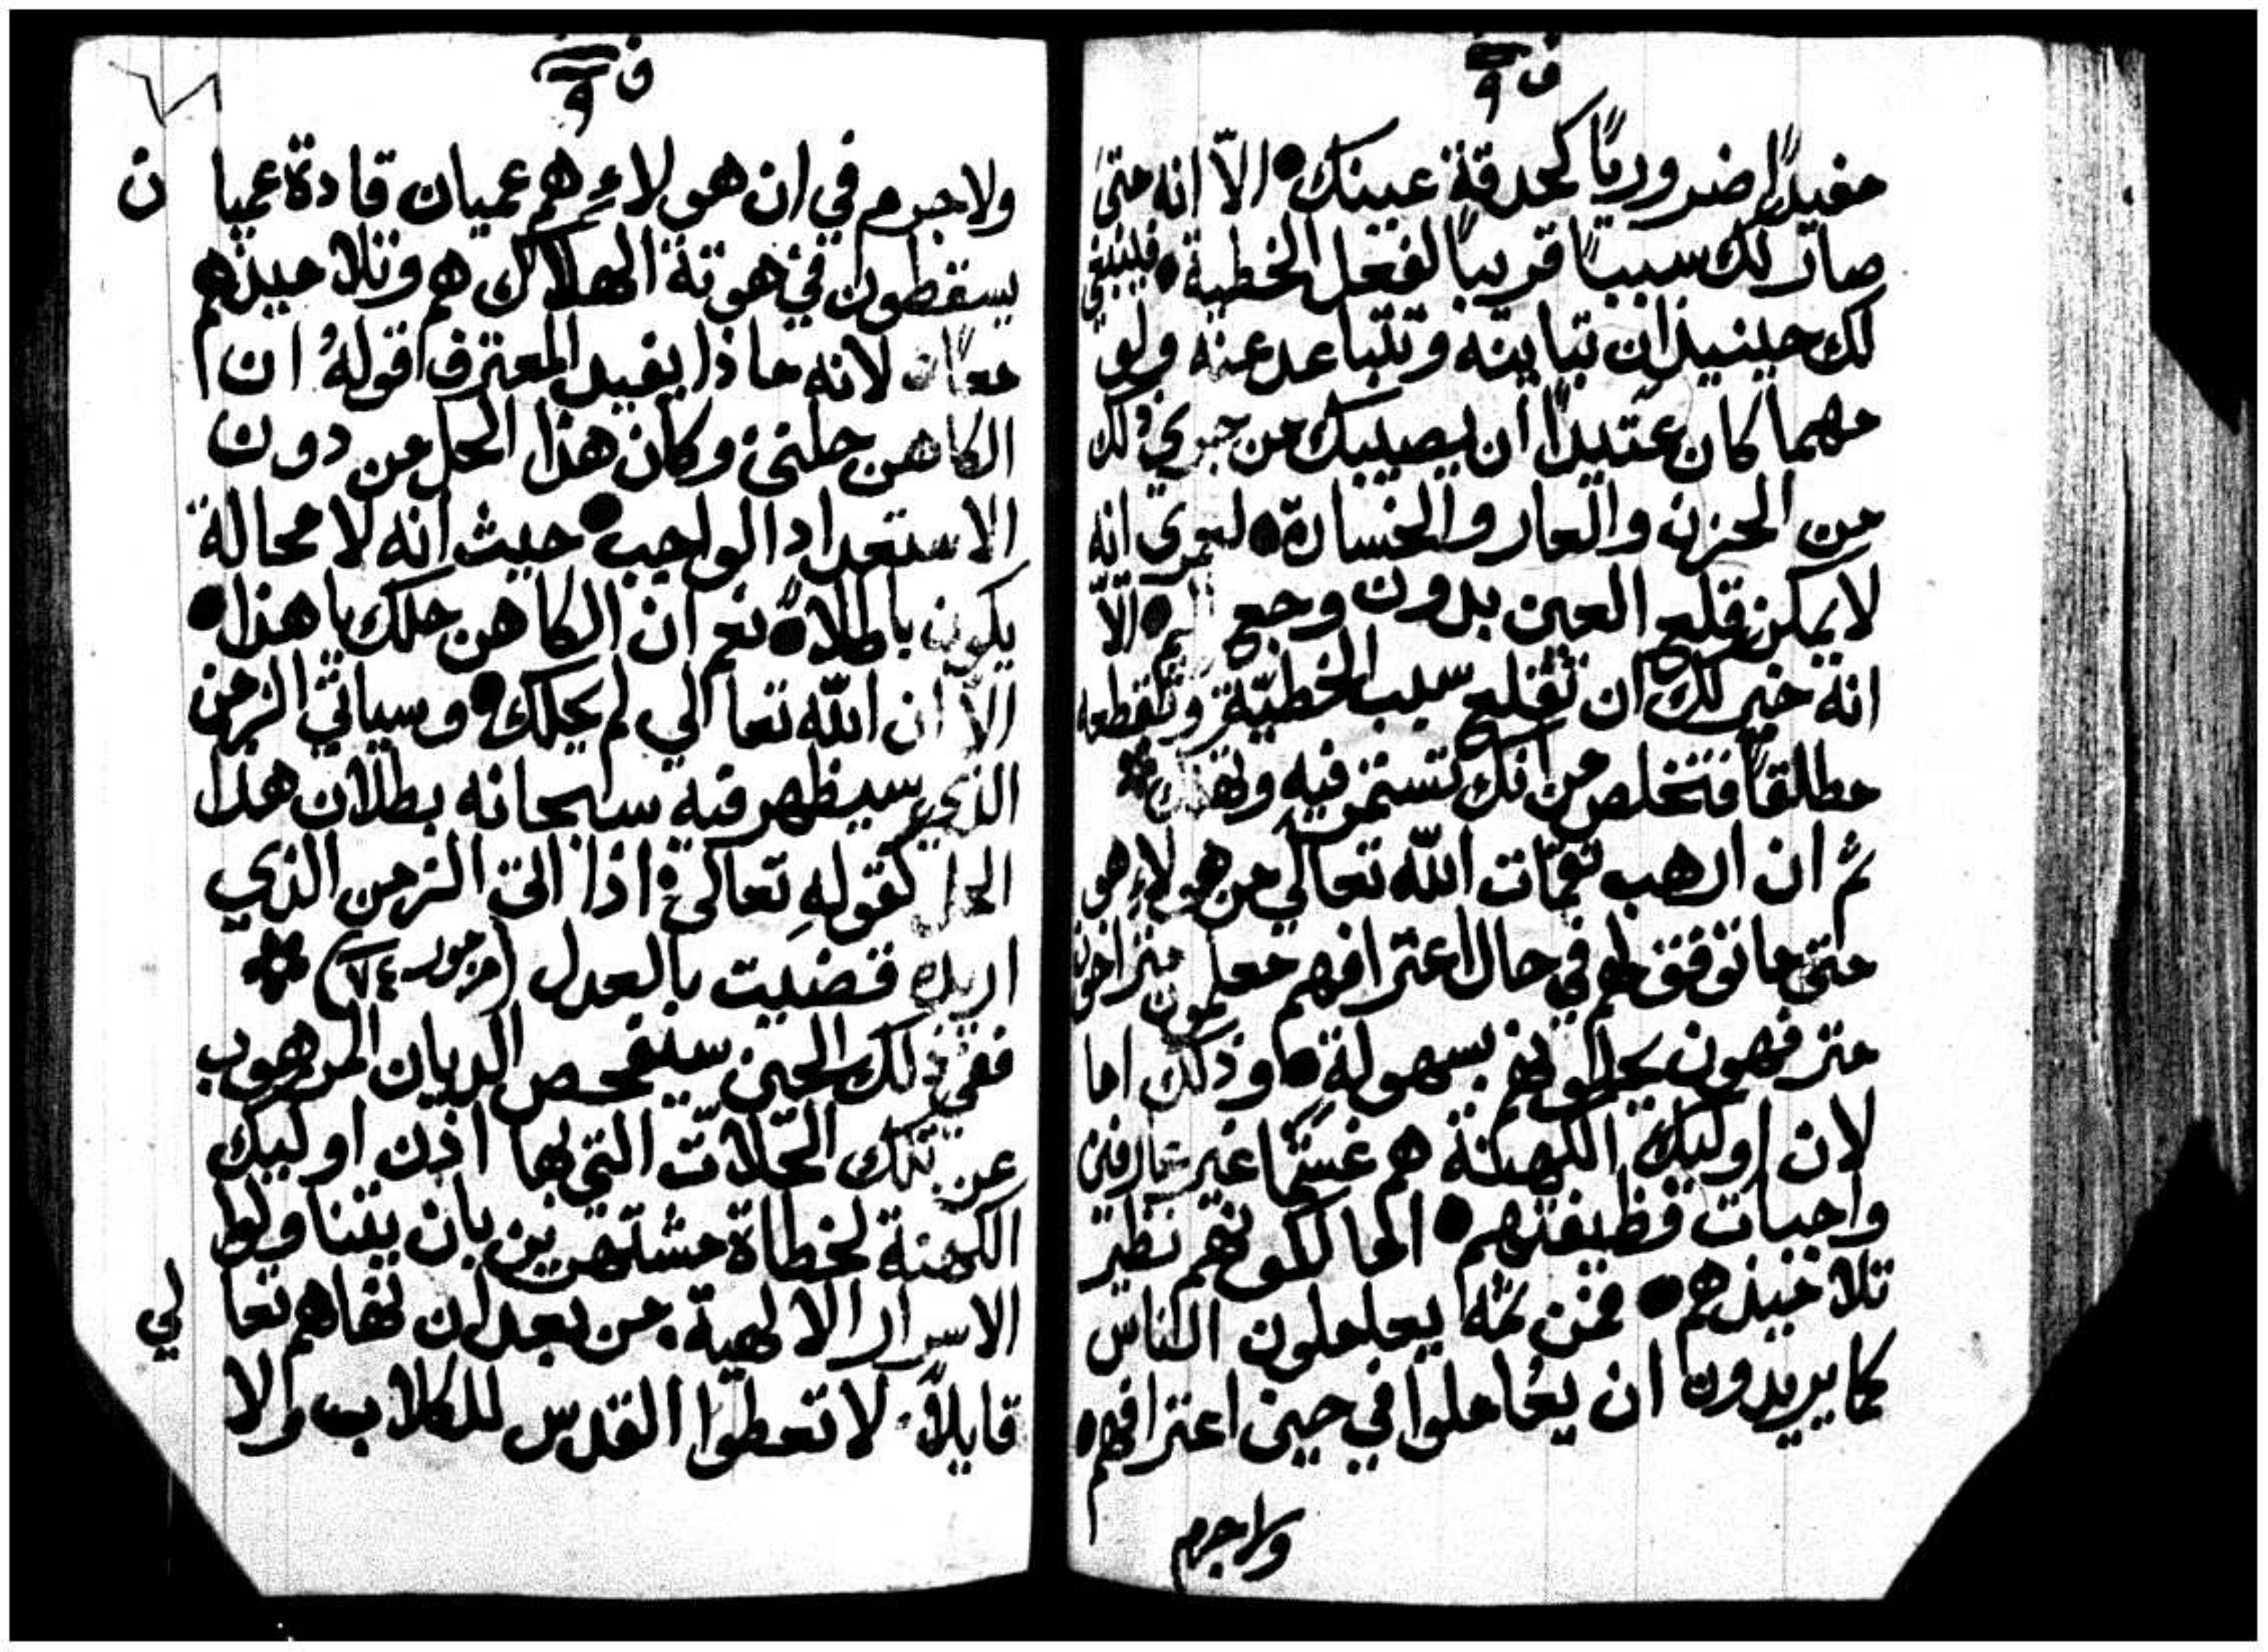 ف ٩
مفيدًا ضروريًا كحدقة عينك • الّا انه متىَ
صار لك سببًا قريبًا لفعل الخطية • فلينبغي
لك حينيذٍ ان تباينه وتتباعد عنه ولو
مهما كان عتيدًا ان يصيبك من جري ذلك
من الحزن والعار والخسارة • لعمرى انه
لا يمكن قلع العين بدون وجع • الّا
انه خير لك ان تقلع سبب الخطيّة وتقطعه
مطلقًا فتخلص من انك تستمر فيه وتهلك *
ثم ان ارهب نقمات الله تعالي من هولاء هو
متى ما توفق لهم في حال اعترافهم معلمون متراخون
مترفهون يحلونهم بسهولة • وذلك اما
لان اوليك الكهنة هم غشمًا غير عارفين
واجبات وظيفتهم • اما لكونهم نظير
تلاميذهم • فمن ثمّه يعاملون الناس
كما يريدون ان يُعاملوا في حين اعترافهم •
ولا جرم
ف ٩
ولا جرم في ان هولاء هم عميان قادة عميان
يسقطون في هوتة الهلاك هم وتلاميذهم
معًا • لانه ماذا يفيد المعترف قولهُ ان
الكاهن حلني وكان هذا الحل من دون
الاستعداد الواجب • حيث انه لا محالة
يكون باطلاً • نعم ان الكاهن حلك يا هذا •
الّا ان الله تعالي لم يحلك • وسياتي الزمن
الذي سيظهر فيه سبحانه بطلان هذا
الحل كقولهِ تعالى • اذا اتى الزمن الذي
اريده قضيت بالعدل (مزمور ٧٤) *
ففي ذلك الحين سيفحص الديان المرهوب
عن تلك الحلات التي بها اذن اوليك
الكهنة لخطاة مشتهرين بان يتناولوا
الاسرار الالهية • من بعد ان نهاهم تعالي
قايلاً • لا تعطوا القدس للكلاب ولا